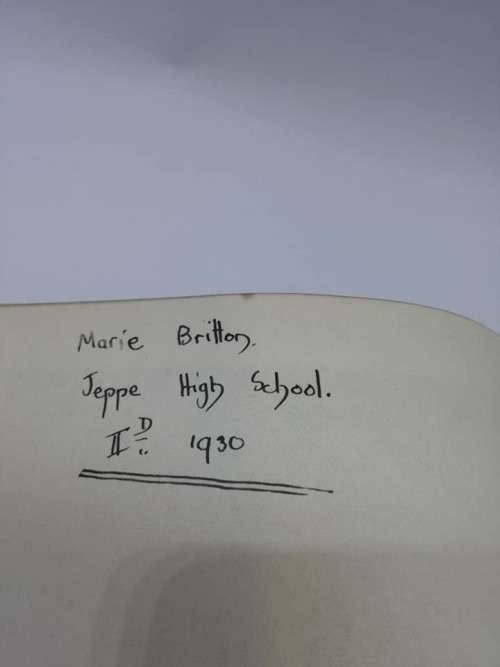 Marie Britton.
Jeppe High School.
II D 1930